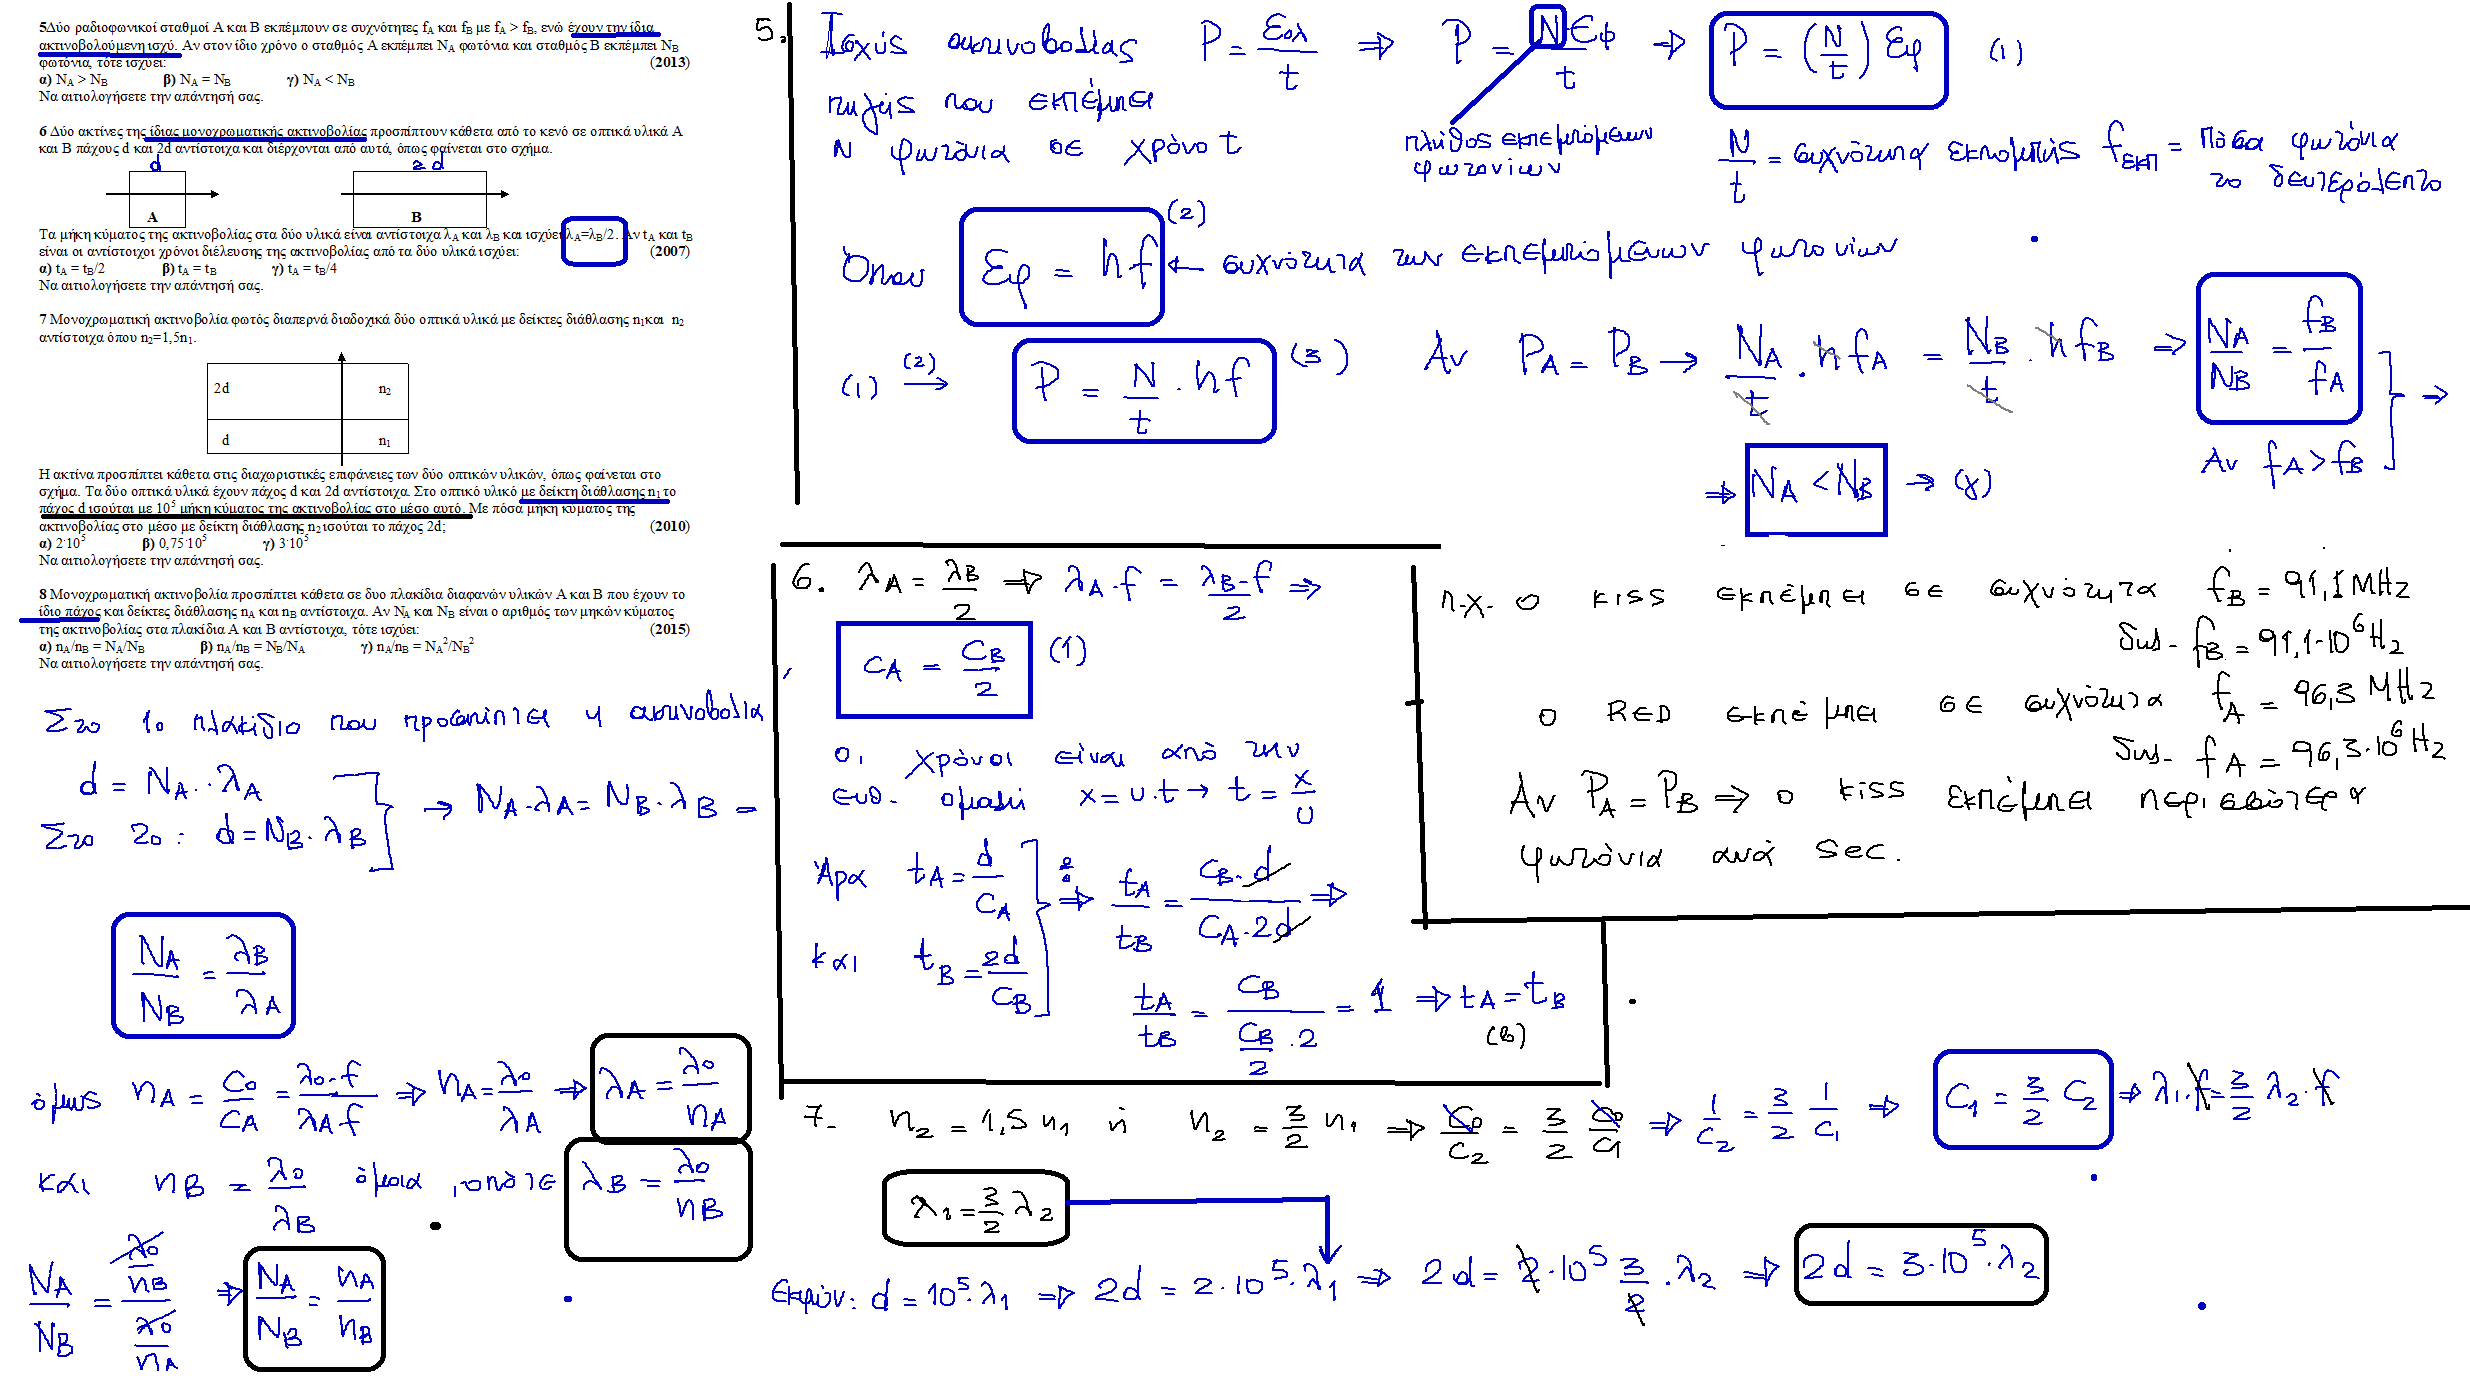 5Δύο ραδιοφωνικοί σταθμοί Α και Β εκπέμπουν σε συχνότητες fA και fB με fA > fB, ενώ έχουν την ίδια
ακτινοβολούμενη ισχύ. Αν στον ίδιο χρόνο ο σταθμός Α εκπέμπει NA φωτόνια και σταθμός Β εκπέμπει NB
φωτόνια, τότε ισχύει: (2013)
α) NA > NB β) NA = NB γ) NA < NB
Να αιτιολογήσετε την απάντησή σας.
6 Δύο ακτίνες της ίδιας μονοχρωματικής ακτινοβολίας προσπίπτουν κάθετα από το κενό σε οπτικά υλικά Α
και Β πάχους d και 2d αντίστοιχα και διέρχονται από αυτά, όπως φαίνεται στο σχήμα.
d 2d
A B
Τα μήκη κύματος της ακτινοβολίας στα δύο υλικά είναι αντίστοιχα λA και λB και ισχύει λA=λB/2. Αν tA και tB
είναι οι αντίστοιχοι χρόνοι διέλευσης της ακτινοβολίας από τα δύο υλικά ισχύει: (2007)
α) tA = tB/2 β) tA = tB γ) tA = tB/4
Να αιτιολογήσετε την απάντησή σας.
7 Μονοχρωματική ακτινοβολία φωτός διαπερνά διαδοχικά δύο οπτικά υλικά με δείκτες διάθλασης n1και n2
αντίστοιχα όπου n2=1,5n1.
2d n2
d n1
Η ακτίνα προσπίπτει κάθετα στις διαχωριστικές επιφάνειες των δύο οπτικών υλικών, όπως φαίνεται στο
σχήμα. Τα δύο οπτικά υλικά έχουν πάχος d και 2d αντίστοιχα. Στο οπτικό υλικό με δείκτη διάθλασης n1 το
πάχος d ισούται με 10^5 μήκη κύματος της ακτινοβολίας στο μέσο αυτό. Με πόσα μήκη κύματος της
ακτινοβολίας στο μέσο με δείκτη διάθλασης n2 ισούται το πάχος 2d; (2010)
α) 2·10^5 β) 0,75·10^5 γ) 3·10^5
Να αιτιολογήσετε την απάντησή σας.
8 Μονοχρωματική ακτινοβολία προσπίπτει κάθετα σε δυο πλακίδια διαφανών υλικών Α και Β που έχουν το
ίδιο πάχος και δείκτες διάθλασης nA και nB αντίστοιχα. Αν NA και NB είναι ο αριθμός των μηκών κύματος
της ακτινοβολίας στα πλακίδια Α και Β αντίστοιχα, τότε ισχύει: (2015)
α) nA/nB = NA/NB β) nA/nB = NB/NA γ) nA/nB = NA^2/NB^2
Να αιτιολογήσετε την απάντησή σας.
Στο 1ο πλακίδιο που προσπίπτει η ακτινοβολία
d = NA·λA
Στο 2ο: d = NB·λB → NA·λA = NB·λB =
NA/NB = λB/λA
όμως nA = C0/CA = λ0·f/λA f ⇒ nA = λ0/λA ⇒ λA = λ0/nA
και nB = λ0/λB όμοια, οπότε λB = λ0/nB
NA/NB = (λ0/nB)/(λ0/nA) ⇒ NA/NB = nA/nB
5. Ισχύς ακτινοβολίας P = Εολ/t ⇒ P = NEφ/t ⇒ P = (N/t) Eφ (1)
πηγής που εκπέμπει
N φωτόνια σε χρόνο t
πλήθος εκπεμπόμενων
φωτονίων
N/t = συχνότητα εκπομπής fεκπ = πόσα φωτόνια
το δευτερόλεπτο
Όπου Eφ = hf (2) ← συχνότητα των εκπεμπόμενων φωτονίων
(1) (2)→ P = N/t · hf (3) Αν PA = PB → NA/t · hfA = NB/t · hfB ⇒ NA/NB = fB/fA
Αν fA > fB ⇒
⇒ NA < NB → (γ)
6. λA = λB/2 ⇒ λA·f = λB·f/2 ⇒
CA = CB/2 (1)
Οι χρόνοι είναι από την
ευθ. ομαλή x = υ·t → t = x/υ
Άρα tA = d/CA
και tB = 2d/CB
⇒ tA/tB = CB·d/CA·2d ⇒
tA/tB = CB/(CB/2 · 2) = 1 ⇒ tA = tB
(β)
π.χ. Ο kiss εκπέμπει σε συχνότητα fB = 91,1 MHz
δηλ. fB = 91,1·10^6 Hz
Ο RED εκπέμπει σε συχνότητα fA = 96,3 MHz
δηλ. fA = 96,3·10^6 Hz
Αν PA = PB ⇒ Ο kiss εκπέμπει περισσότερα
φωτόνια ανά sec.
7. n2 = 1,5 n1 ή n2 = 3/2 n1 ⇒ C0/C2 = 3/2 C0/C1 ⇒ 1/C2 = 3/2 1/C1 ⇒ C1 = 3/2 C2 ⇒ λ1·f = 3/2 λ2·f
λ1 = 3/2 λ2
Εκφών: d = 10^5·λ1 ⇒ 2d = 2·10^5·λ1 ⇒ 2d = 2·10^5 3/2·λ2 ⇒ 2d = 3·10^5·λ2